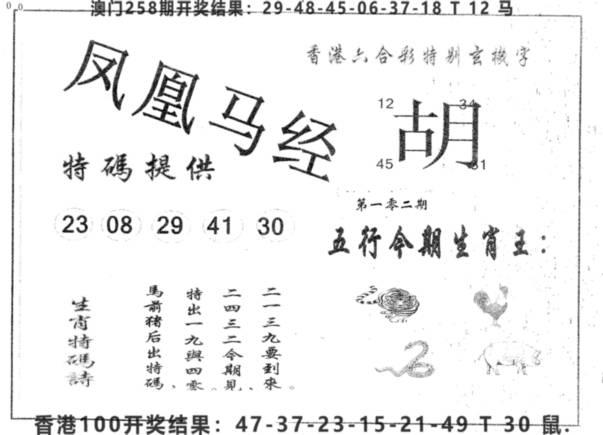 澳门258期开奖结果：29-48-45-06-37-18 T 12 马
香港六合彩特别玄機字
凤凰马经
12 34
胡
45 31
特碼提供
第一零二期
23 08 29 41 30
五行今期生肖王：
二一三九要到來。
二四三二今期見、
特出一九與四零。
馬前猪后出特碼、
生肖特碼詩
香港100开奖结果：47-37-23-15-21-49 T 30 鼠.